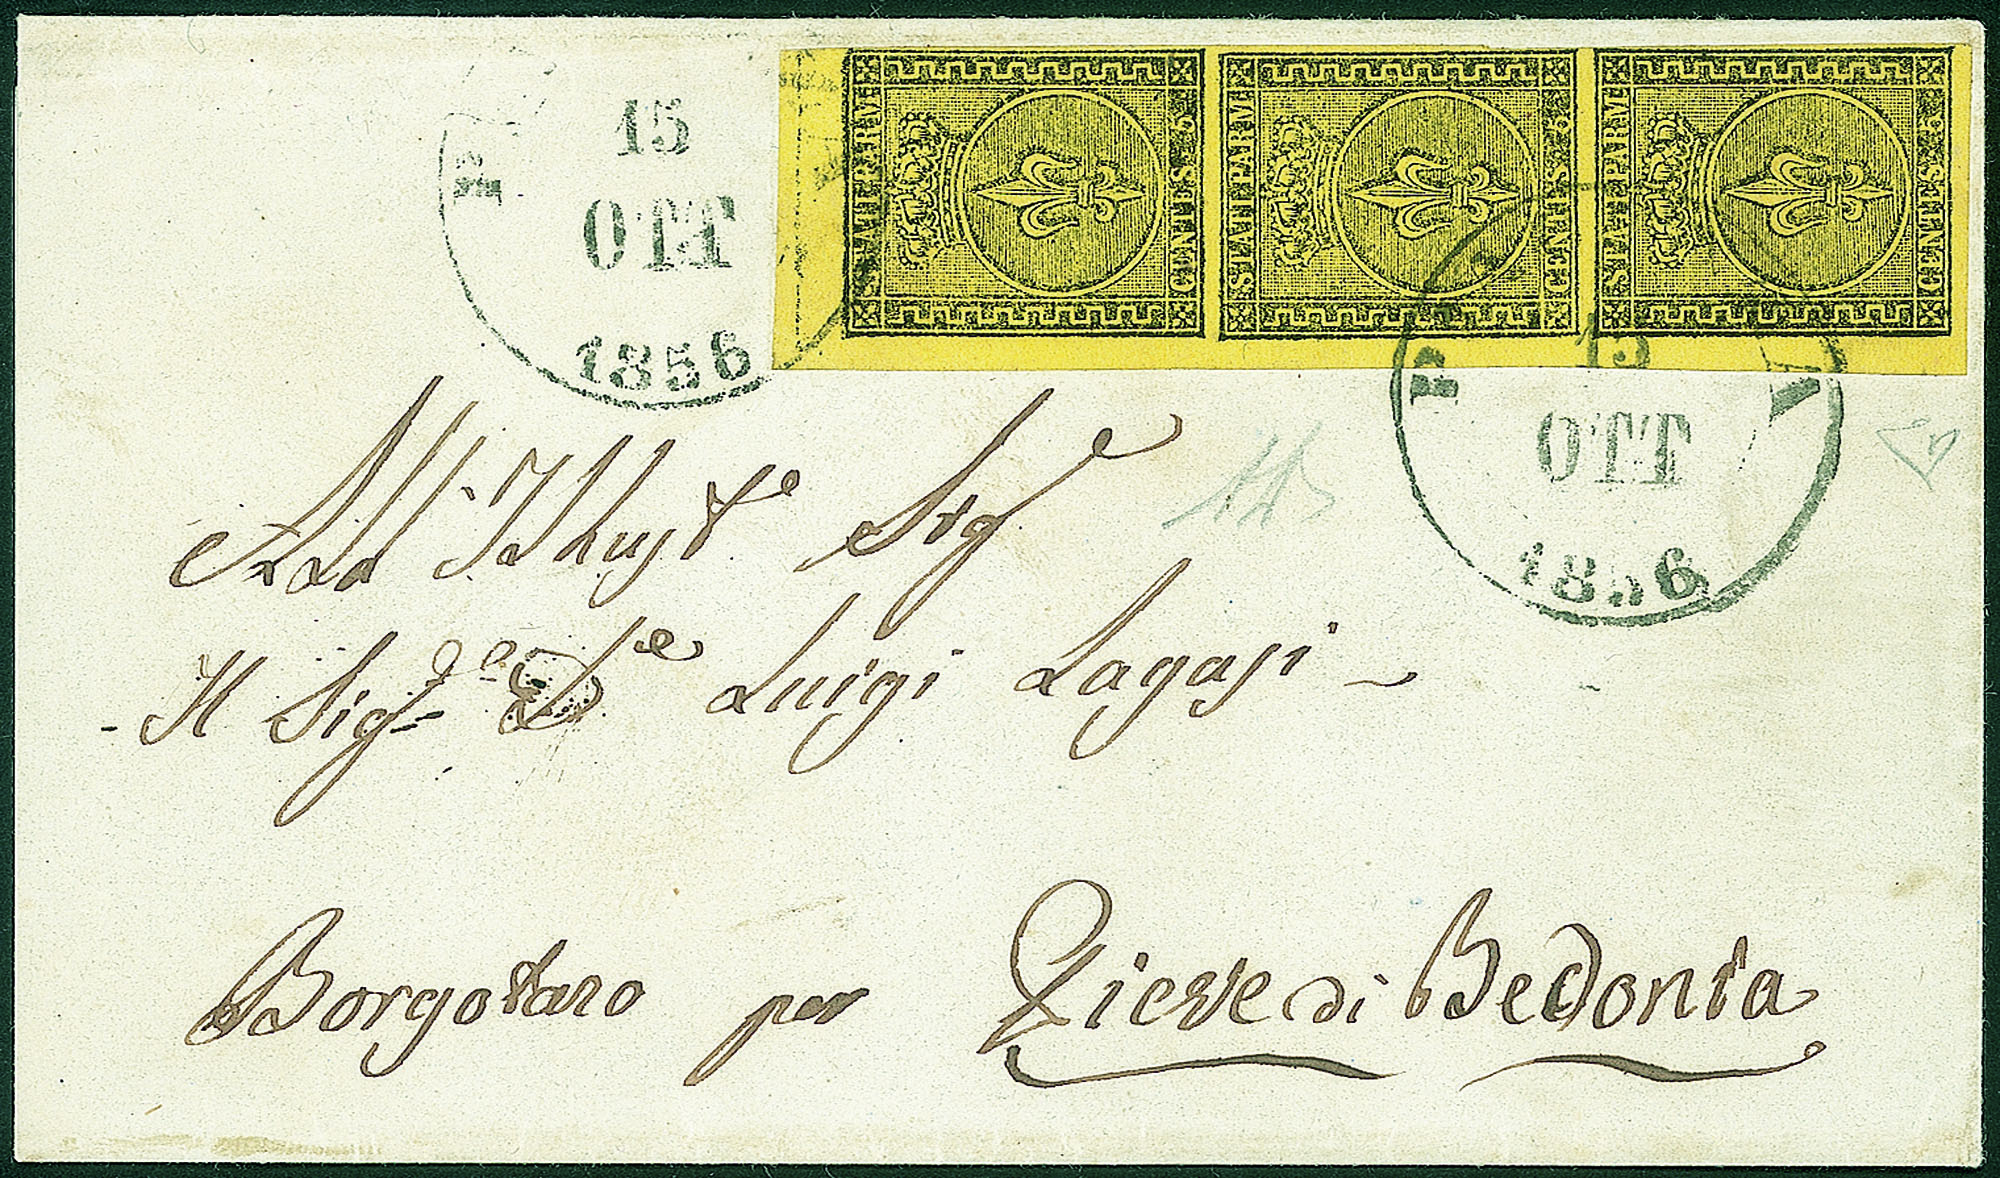 15
OTT
1856
STATI PARM
CENTES 5
STATI PARM
CENTES 5
STATI PARM
CENTES 5
P A
15
OTT
1856
All' Illust.e Sig.e
Il Sig.r Luigi Lagasi
Borgotaro per Pieve di Bedonia